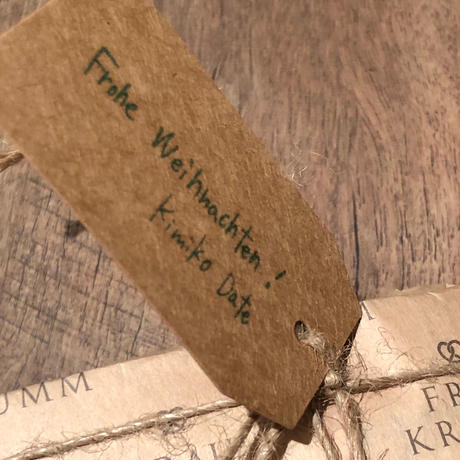 Frohe Weihnachten!
Kimiko Date
UMM
FR
KR